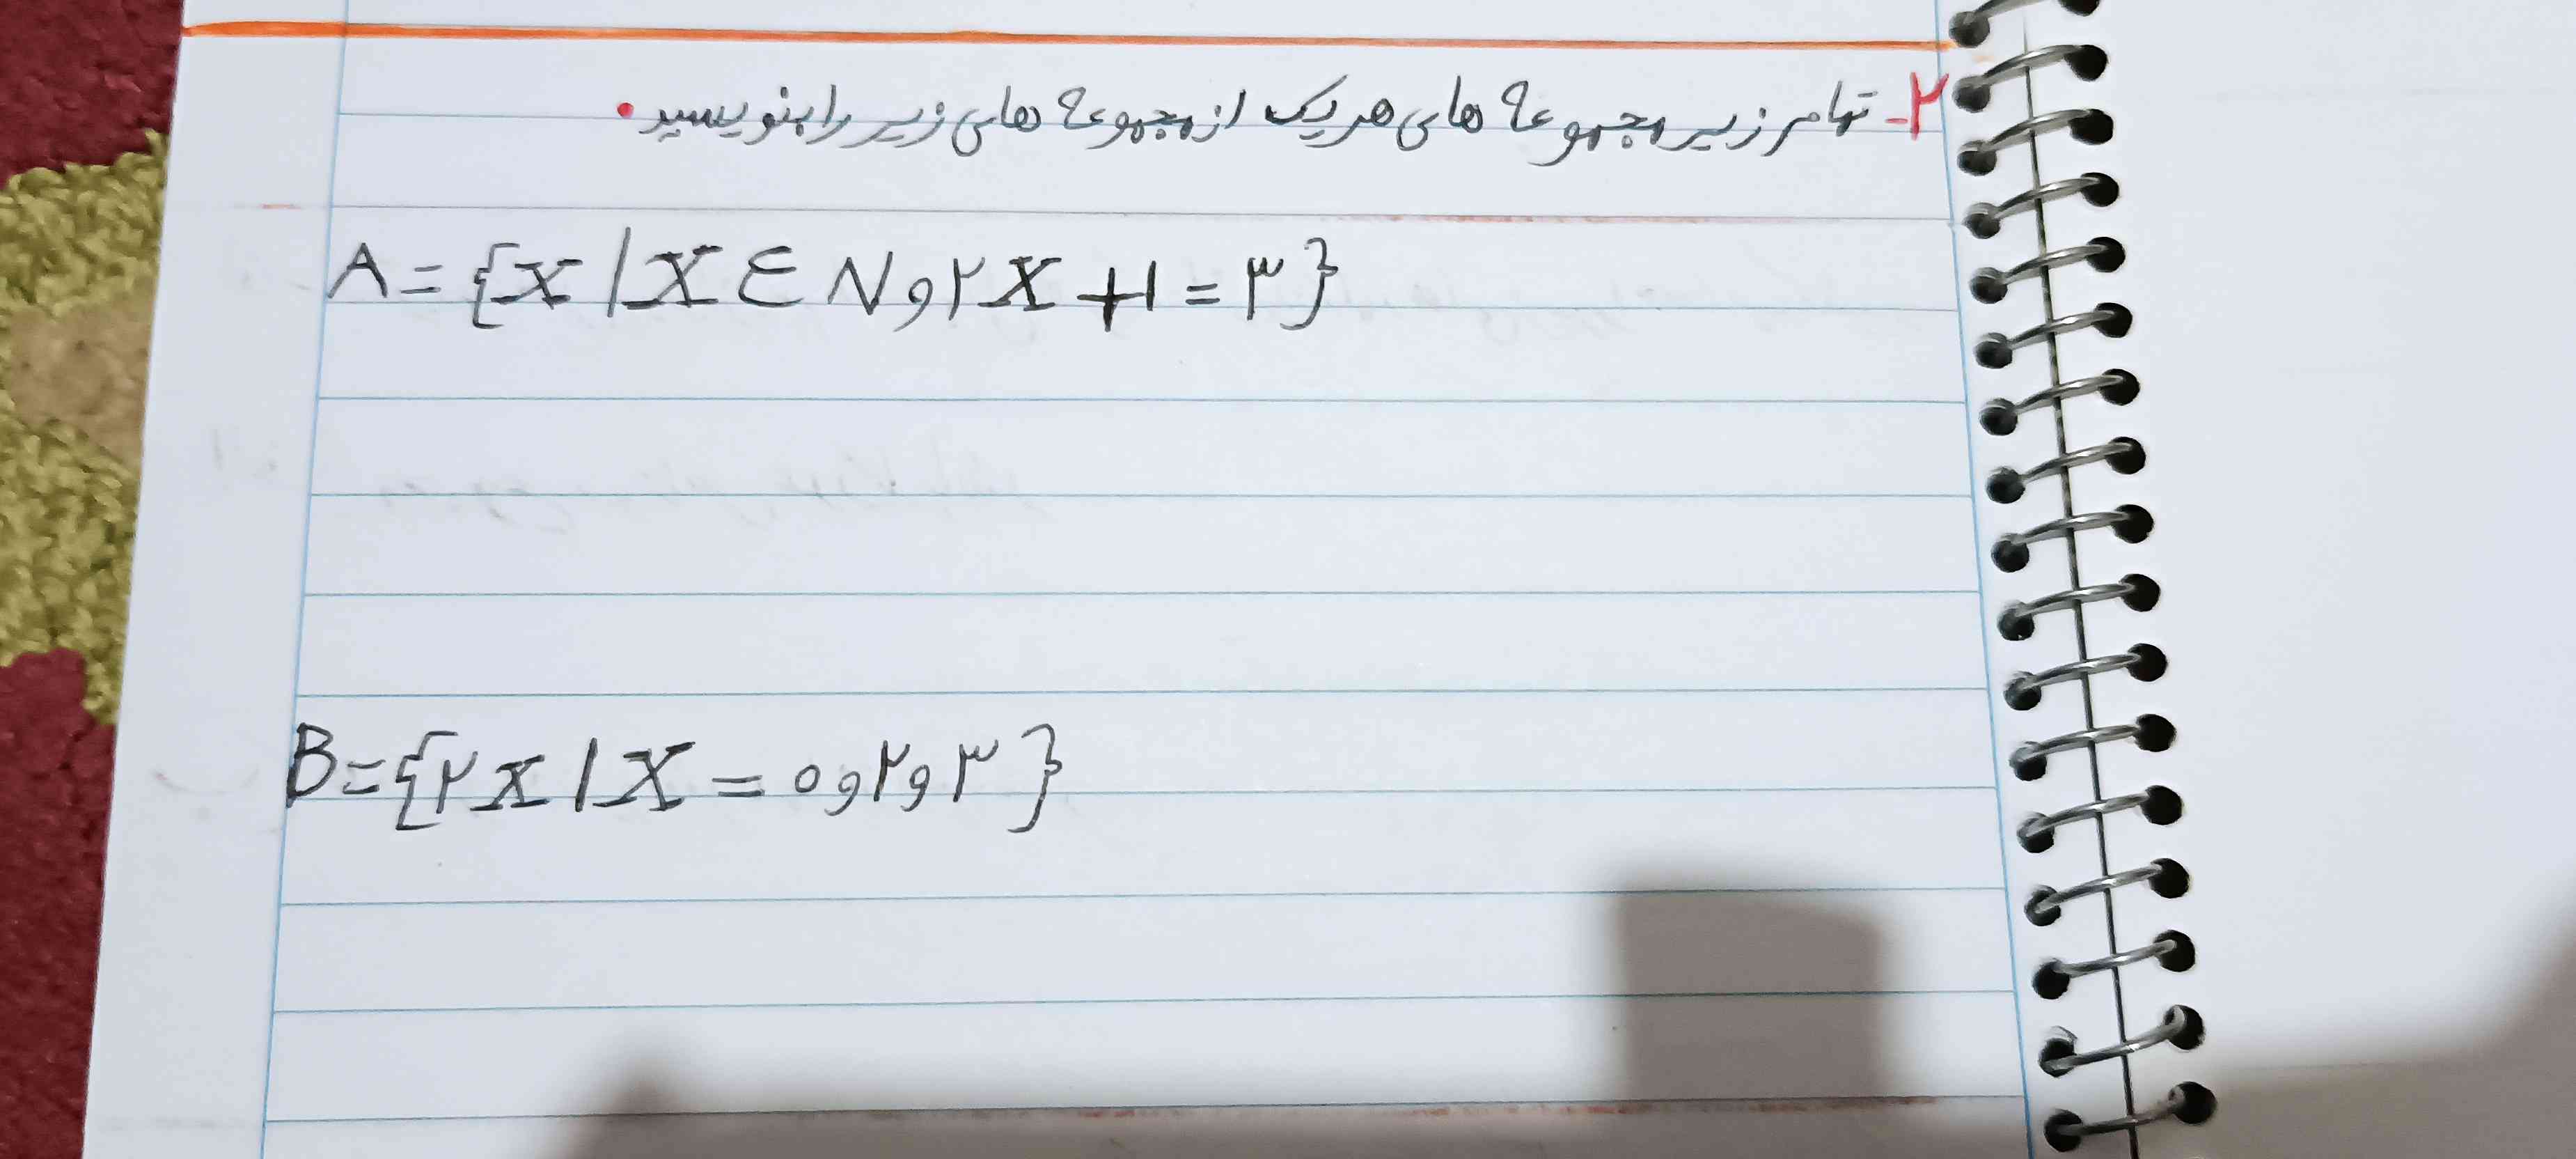 ۲- تمام زیر مجموعه های هر یک از مجموعه های زیر را بنویسید.
A = {x | x ∈ N و ۲x + ۱ = ۳}
B = {۲x | x = ۰ و ۲ و ۳}